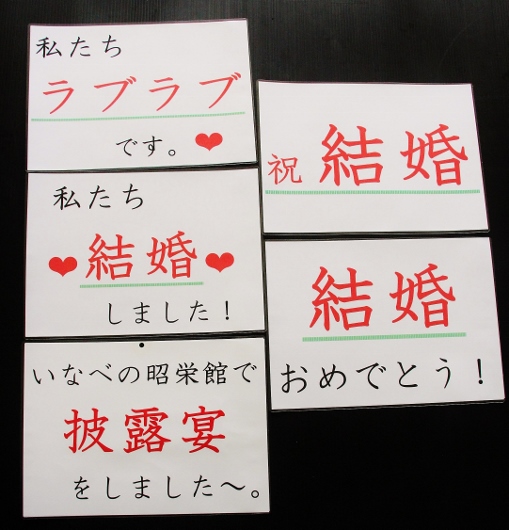 私たち
ラブラブ
です。❤
私たち
❤結婚❤
しました！
いなべの昭栄館で
披露宴
をしました～。
祝結婚
結婚
おめでとう！